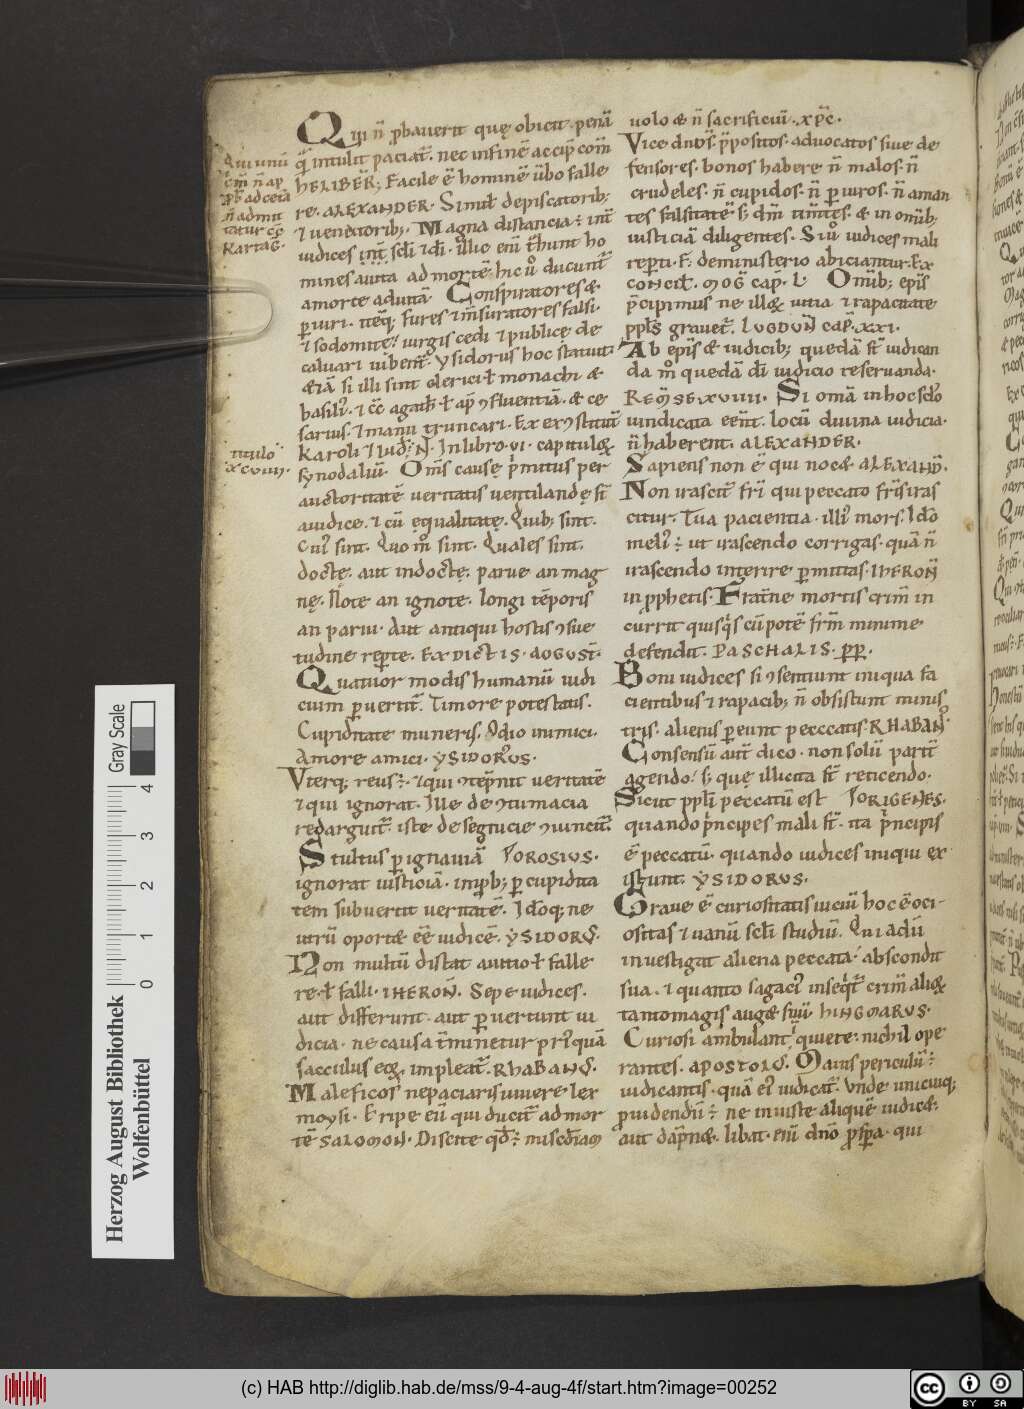 Qui n̄ ꝓbauerit quę obicit. penā
q̄ intulit paciat̄. nec in fine accip̄ com̄
HELIBER̄; Facile ē hominē ūbo falle
re. ALEXANDER. Simil̄ de piscatorib;
⁊ uenatorib;. Magna distancia ÷ int̄
iudices int̄ sc̄li ⁊ dī. illic enī t̄hunt ho
mines a uita ad mortē. hic ū̊ ducunt̄
a morte ad uitā. Conspiratores &
ꝑiuri. iteq; fures ⁊ m̄suratores falsi.
⁊ sodomite. uirgis cedi ⁊ publice de
caluari iubent̄. Ysidorus hoc statuit
&iā si illi sint clerici ł monachi &
basili. ⁊ cc̄ agath ł ap̄ ꝯfluentiā. & ce
sarius. ⁊ manu truncari. Ex exꝯstitut̄
Karoli ⁊ lud̄. N̄. In libro. vi. capitulꝝ
synodaliū. Om̄s cause p̄mitus per
auctoritatē ueritatis uentilandę st̄
a iudice. ⁊ cū equalitate. Quib; sint.
Cui sint. Quo m̊ sint. Quales sint.
docte. aut indocte. parue an mag
nę. Note an ignote. longi tēporis
an parui. Aut antiqui hostis ꝯsue
tudine reꝑte. EX DICTIS. AUGUST̄.
Quatuor modis humanū iudi
cium ꝑuertit̄. Timore potestatis.
Cupiditate muneris. Odio inimici.
Amore amici. YSIDORUS.
Vterq; reus ÷. ⁊ qui ꝯtēpnit ueritatē
⁊ qui ignorat. Ille de ꝯtumacia
redarguit̄. iste de segnicie ꝯuincit̄.
Stultus ꝑ ignauiā OROSIUS.
ignorat iusticiā. inprb; ꝑ cupidita
tem subuertit ueritatē. Idoq; ne
utrū oport& eē iudicē. YSIDOR9.
Non multū distat a uitio ł falle
re. ł falli. IHERON̄. Sepe iudices.
aut differunt. aut ꝑuertunt iu
dicia. ne causa t̄minetur pri9quā
sacculus eoꝝ impleat̄. RHABAN9.
Maleficos ne paciaris uiuere lex
moysi. Eripe eū qui ducit̄ ad mor
tē SALOMON. Discite qd̄ ÷ mised̄iam
Aut unū
cm̄ n̄ ap
ꝓb̄ ad cetā
n̄ admit
tatur cp̄
KARTAG̅.
titulo
xcviiii.
uolo & n̄ sacrificiū. xp̄c.
Vice dnos̄. p̄positos. aduocatos siue de
fensores. bonos habere n̄ malos. n̄
crudeles. n̄ cupidos. n̄ ꝑiuros. n̄ aman
tes falsitatē s; dm̄ tim̄tes. & in om̄ib;
iusticiā diligentes. Si ū̊ iudices mali
reperti. F. de ministerio abiciantur. EX
CONCIL̄. MOG̅ CAP̄. L. Om̄ib; epīs
p̄cipimus ne illoꝝ uitia ⁊ rapacitate
ppl̄s grauet̄. LUGDUN̄ CAP̄. XXI.
Ab epīs & iudicib; quedā st̄ iudican
da m̊ quedā dī iudicio reseruanda.
REM̄SE. XVIIII. Si om̄ia in hoc sc̄lo
uindicata eēnt. locū diuina iudicia.
n̄ haberent. ALEXANDER.
Sapiens non ē qui noc&. ALEXAND̄.
Non irascit̄ fr̄i qui peccato fr̄is iras
citur. Tua pacientia. illi9 mors. Ido
meli9 ÷ ut irascendo corrigas. quā n̄
irascendo interire ꝑmittas. IHERON̄
in ꝓphetis. Frat̄ne mortis crim̄ in
currit quisq̄s cū pot̄ē fr̄m minime
defendit. PASCHALIS. PP.
Boni iudices si ꝯsentiunt iniqua fa
cientibus ⁊ rapacib; n̄ obsistunt minis
tris. alienis ꝑeunt pecccatis. RHABAN9.
Consensū aut̄ dico. non solū partit̄
agendo. s; quę illicita st̄ reticendo.
Sicut ppl̄i peccatū est ORIGENES.
quando p̄ncipes mali st̄. ita p̄ncipis
ē peccatū. quando iudices iniqui ex
istunt. YSIDORUS.
Graue ē curiositatis uiciū hoc ē oci-
ositas ⁊ uanū sc̄li studiū. Qui adū
inuestigat aliena peccata. abscondit
sua. ⁊ quanto sagaci9 inseq̄t̄ crim̄ alioꝝ
tanto magis aug& suū. HINGMARUS.
Curiosi ambulant̄. quiete. nichil ope
rantes. APOSTOL9. Maius periculū ÷
iudicantis. quā ei9 iudicat̄. Vnde unicuiq;
ꝓuidendū ÷ ne iniuste aliquē iudic&.
aut dāpn&. libat. enī dn̄o ꝓspa. qui
Herzog August Bibliothek
Wolfenbüttel
0 1 2 3 4
Gray Scale
(c) HAB http://diglib.hab.de/mss/9-4-aug-4f/start.htm?image=00252
cc BY SA